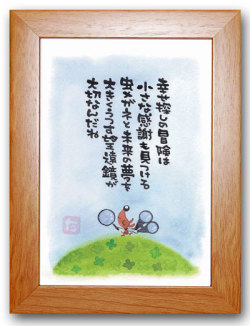 幸せ探しの冒険は
小さな感謝を見つける
虫メガネと未来の夢を
大きくうつす望遠鏡が
大切なんだね